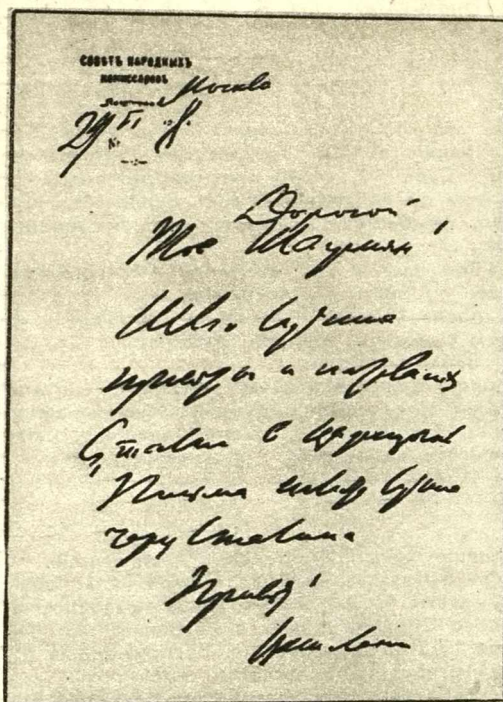 СОВЕТЪ НАРОДНЫХЪ
КОМИССАРОВЪ
Москва
29 VI 8.
№
Дорогой
Тов Шаумян!
Шлю лучшие
приветы и
Сталин в Царицыне
Письма лучше
через Сталина
Привет!
Ваш Ленин